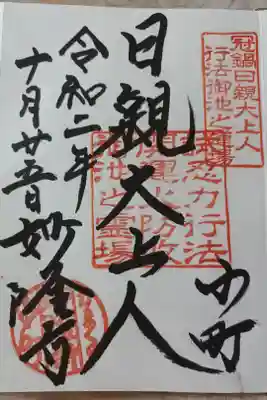 冠鍋日親大上人
行法御池之霊場
忍力行法
之霊場
小町
日親大上人
令和二年
十月廿五日妙隆寺